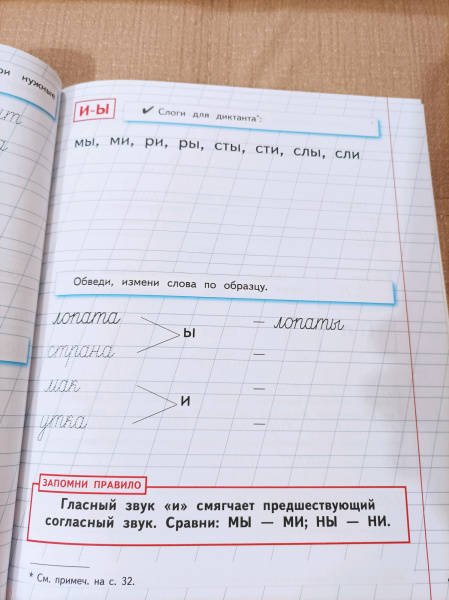 ри нужные
И-Ы
✔ Слоги для диктанта*:
мы, ми, ри, ры, сты, сти, слы, сли
Обведи, измени слова по образцу.
лопата
Ы
— лопаты
страна
—
мак
И
—
утка
—
ЗАПОМНИ ПРАВИЛО
Гласный звук «и» смягчает предшествующий
согласный звук. Сравни: МЫ — МИ; НЫ — НИ.
* См. примеч. на с. 32.